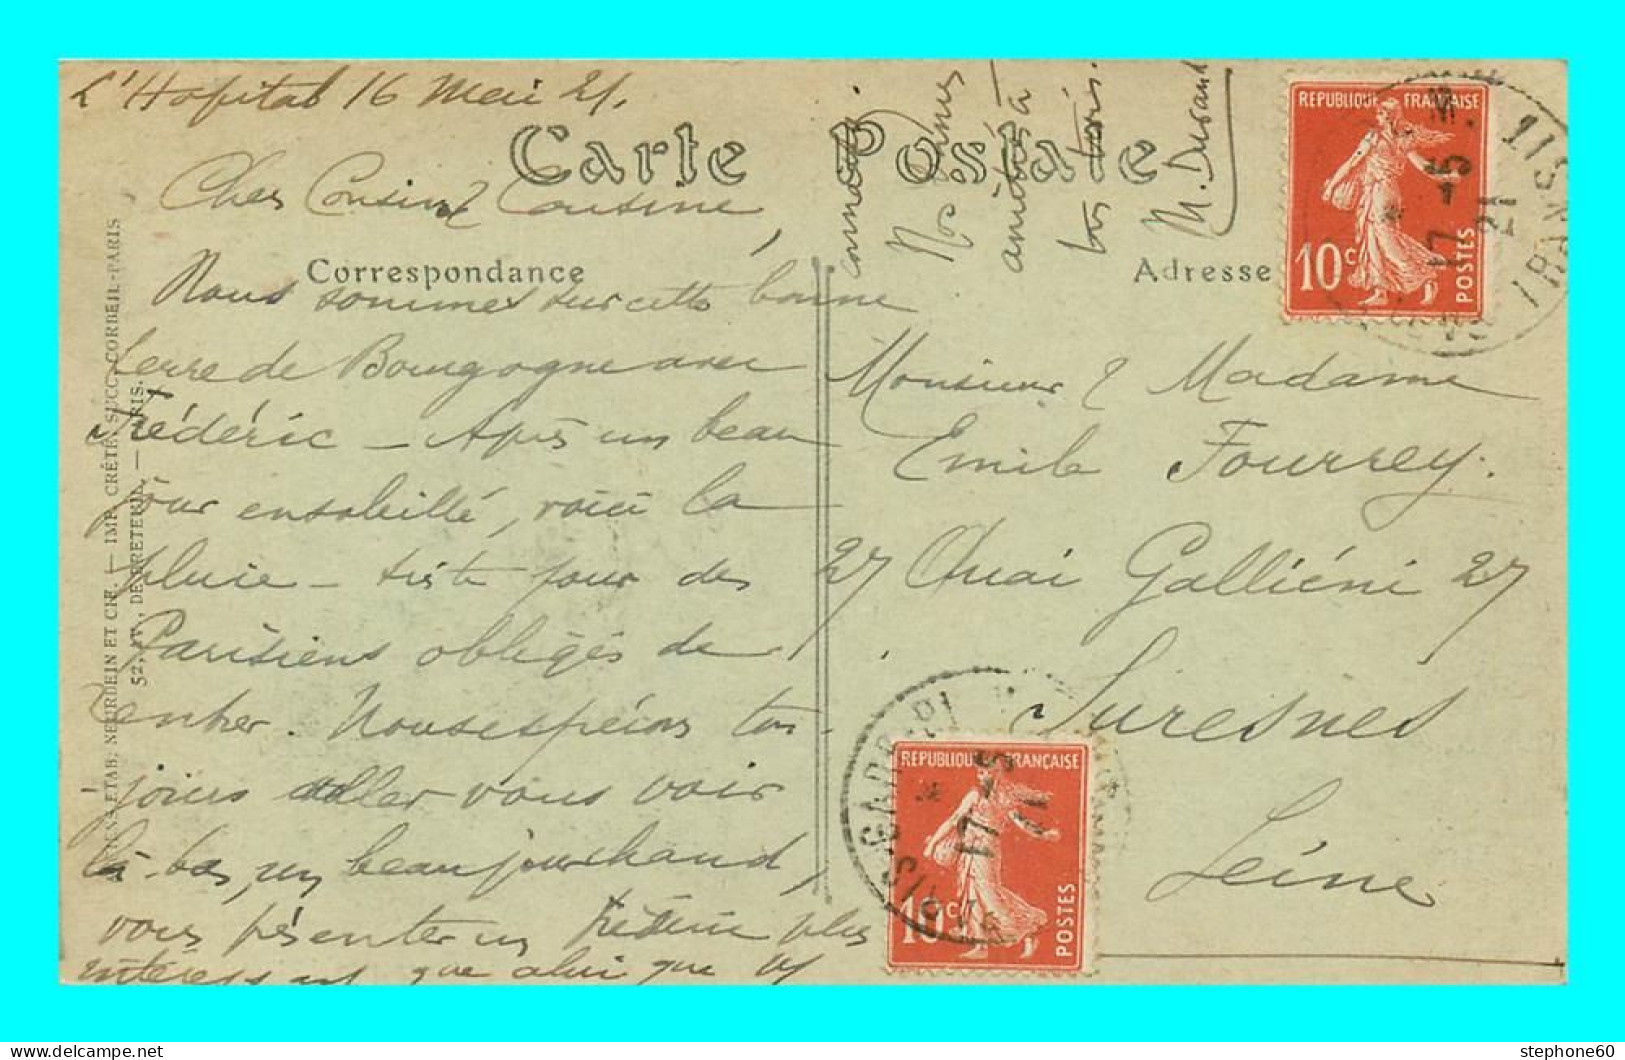 L'Hopital 16 Mai 21.
Carte Postale
Cher Cousin & Cousine,
Correspondance
Nous sommes sur cette bonne
terre de Bourgogne avec
Frédéric – Après un beau
jour ensoleillé, voici la
pluie – triste pour des
Parisiens obligés de
rentrer. Nous espérons tou-
jours aller vous voir
là-bas, un beau jour chaud,
vous présenter un Frédéric plus
intéressant que celui que vs
connaissez
Nos
amitiés à
tous trois.
M. Durand
Adresse
Monsieur & Madame
Emile Fourrey.
27 Quai Galliéni 27
Suresnes
Seine
ANCIENS ETAB. NEURDEIN ET CIE. — IMP. CRÉTÉ, SUCC. CORBEIL-PARIS
52, AV. DE BRETEUIL. — PARIS.
REPUBLIQUE FRANÇAISE
10c
POSTES
17 -5
21
REPUBLIQUE FRANÇAISE
10c
POSTES
17 -5
stephone60